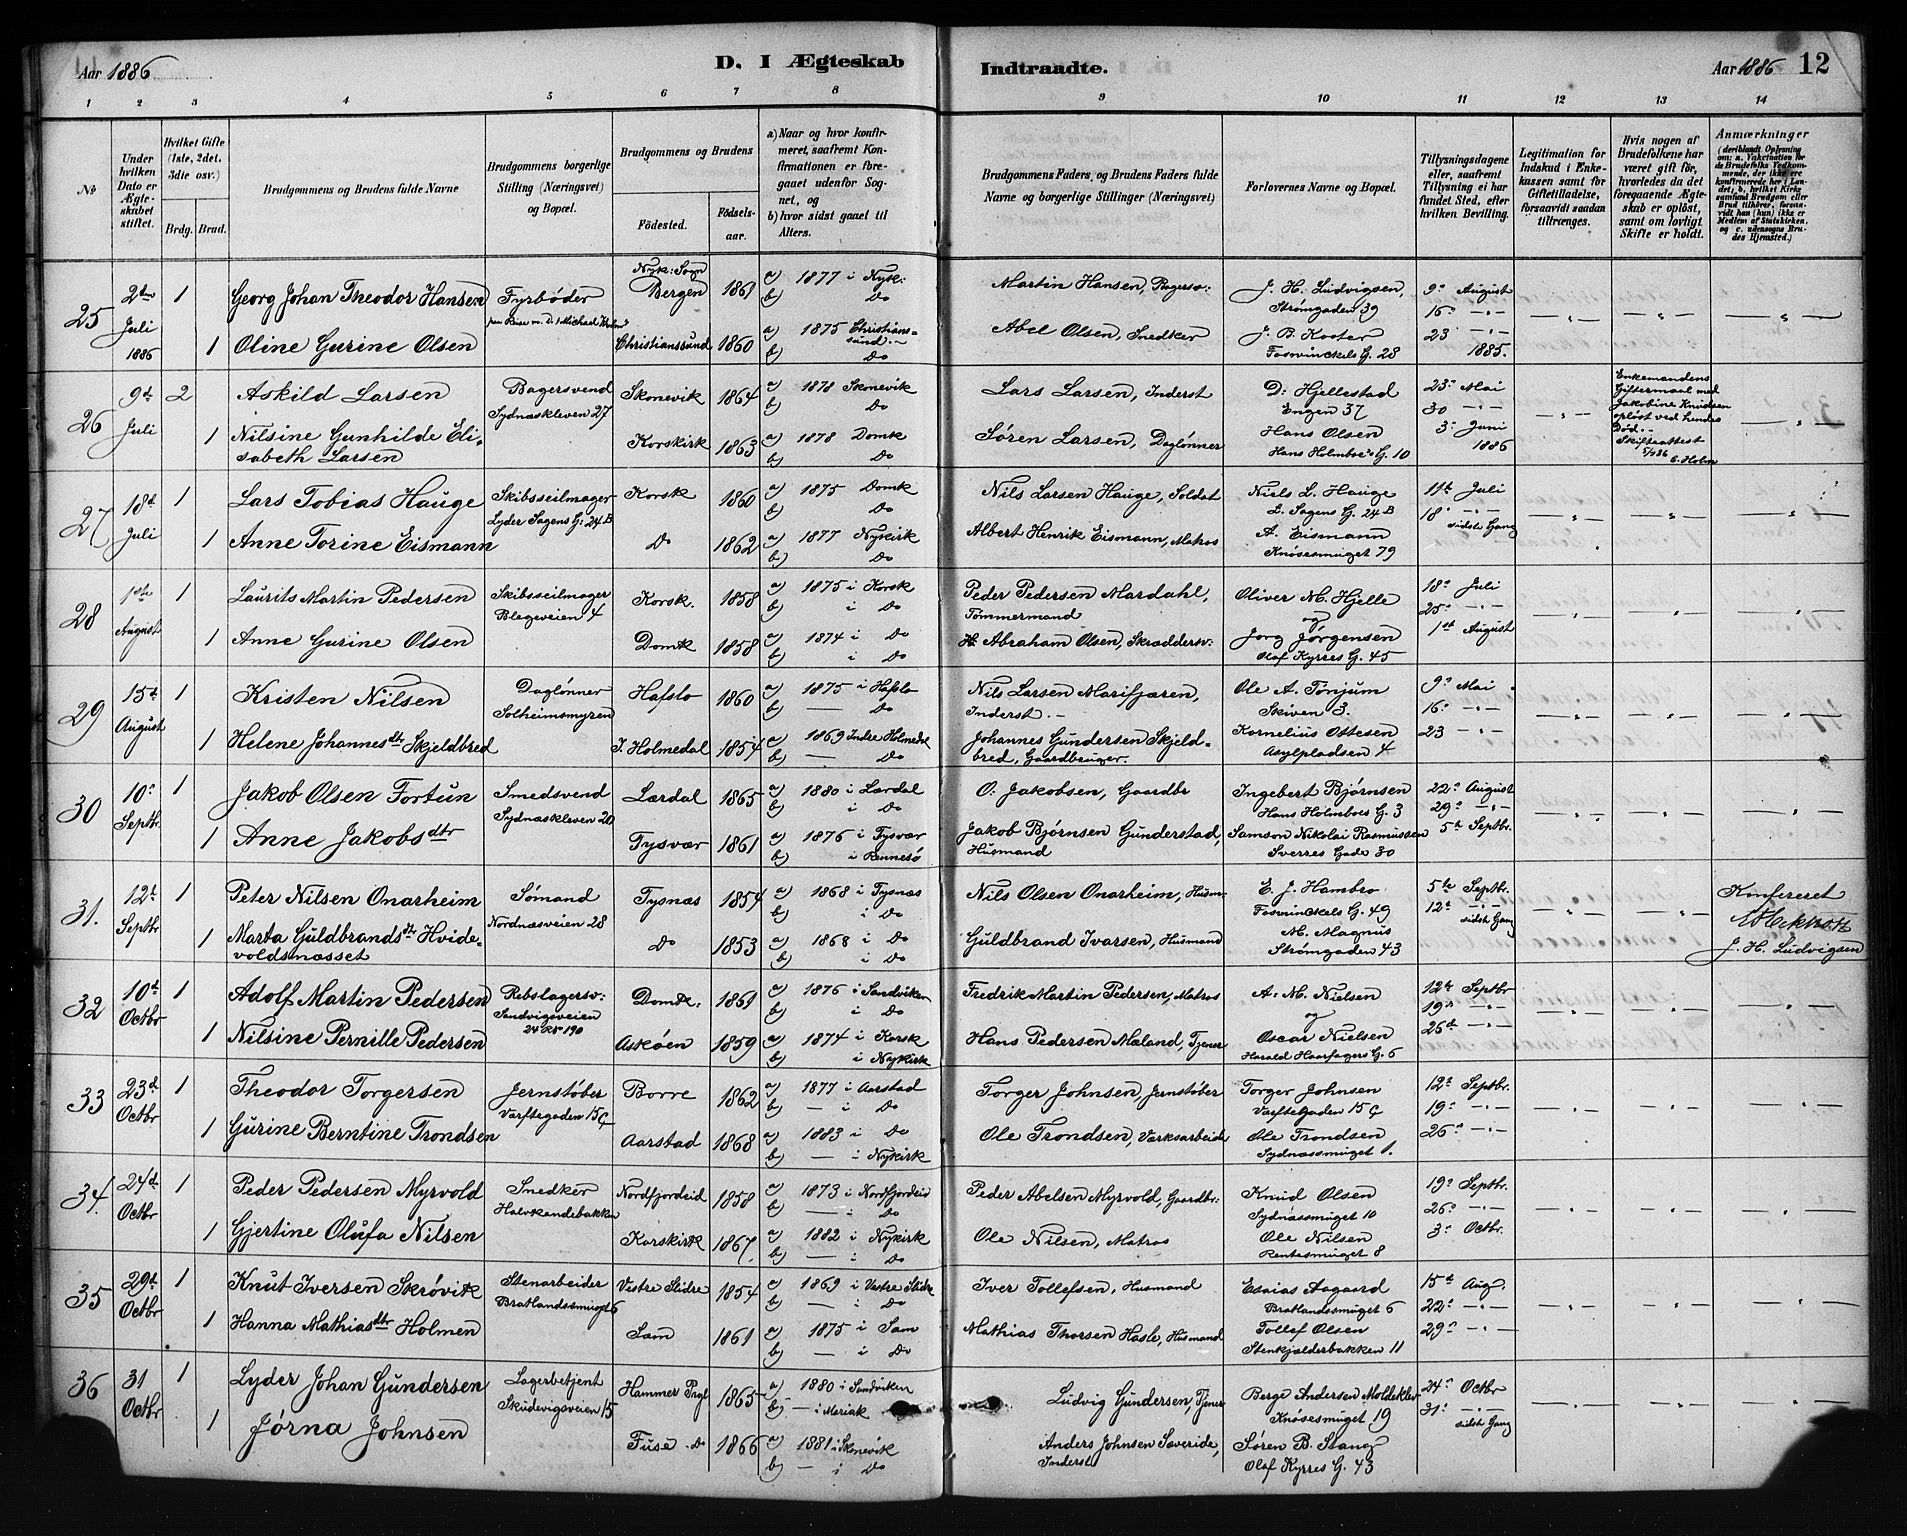 Aar 1886 D. I Ægteskab Indtraadte. Aar 1886 12
1 2 3 4 5 6 7 8 9 10 11 12 13 14
No
Under hvilken Dato er Ægteskabet stiftet.
Hvilket Gifte (1ste, 2det, 3die osv.)
Brdg. Brud.
Brudgommens og Brudens fulde Navne
Brudgommens borgerlige Stilling (Næringsvei) og Bopæl.
Brudgommens og Brudens
Fødested. Fødselsaar.
a) Naar og hvor konfirmeret, saafremt Konfirmationen er foregaaet udenfor Sognet, og
b) hvor sidst gaaet til Alters.
Brudgommens Faders og Brudens Faders fulde Navne og borgerlige Stillinger (Næringsvei)
Forlovernes Navne og Bopæl.
Tillysningsdagene eller, saafremt Tillysning ei har fundet Sted, efter hvilken Bevilling.
Legitimation for Indskud i Enkekassen samt for Giftetilladelse, forsaavidt saadan tiltrænges.
Hvis nogen af Brudefolkene har været gift før, hvorledes da det foregaaende Ægteskab er opløst, samt om lovligt Skifte er holdt.
Anmærkninger (deriblandt Oplysning om: a. Vakcination for de Brudefolks Vedkommende, der ikke ere konfirmerede her i Landet; b. hvilket Kirkesamfund Brudgom eller Brud tilhører, forsaavidt han (hun) ikke er Medlem af Statskirken, og c. udensogns Brudes Hjemsted.)
25 2den Juli 1886 1 Georg Johan Theodor Hansen Fyrbøder Nyk: Sogn Bergen 1861 a) 1877 i Nyk: b) Do Martin Hansen, Bagersv: J. H. Ludvigsen, Strømgaden 39 9de August 16 23 1885.
1 Oline Gurine Olsen Christianssund 1860 a) 1875 Christianssund b) Do Abel Olsen, Snedker J. B. Koster Fosvinckels G. 28
26 9d Juli 2 Askild Larsen Bagersvend Sydnæskleven 27 Skonevik 1864 a) 1878 Skonevik b) Do Lars Larsen, Inderst D. Hjellestad Engen 37 23 Mai 30 3 Juni 1886 Enkemandens Giftermaal med Jakobine Knudsen opløst ved hendes Død. Skifteattest 5/7 86 E. Holm
1 Nilsine Gunhilde Elisabeth Larsen Korskirk 1863 a) 1878 Domk b) Do Søren Larsen, Daglønner Hans Olsen Hans Holmboe's G. 10
27 18d Juli 1 Lars Tobias Hauge Skibsseilmager Lyder Sagens G: 24 B Korsk 1860 a) 1875 Domk b) Do Nils Larsen Hauge, Soldat Niels L. Hauge L. Sagens G. 24 B 11te Juli 18 sidste Gang
1 Anne Torine Eismann Do 1862 a) 1877 Nykirk b) Do Albert Henrik Eismann, Matros A. Eismann Knøsesmuget 79
28 1ste August 1 Laurits Martin Pedersen Skibsseilmager Blegeveien 4 Korsk. 1858 a) 1875 i Korsk b) i Do Peder Pedersen Mardahl, Tømmermand Oliver M. Hjelle og 18 Juli 25 1st August
1 Anne Gurine Olsen Domk 1858 a) 1874 i Do b) i Do Abraham Olsen, Skræddersv: Jørg Jørgensen Olaf Kyrres G. 45
29 15d August 1 Kristen Nilsen Daglønner Solheimsmyren Hafslo 1860 a) 1875 i Hafslo b) Do Nils Larsen Marifjæren, Inderst Ole A. Tønjum Skiven 3. 9 Mai 16 23
1 Helene Johannesdtr Skjeldbred I. Holmedal 1854 a) 1869 Indre Holmedal b) Do Johannes Gundersen Skjeldbred, Gaardbruger. Kornelius Ottesen Asylpladsen 4
30 10 Septbr. 1 Jakob Olsen Fortun Smedsvend Sydnæskleven 20 Lærdal 1865 a) 1880 i Lærdal b) i Do O. Jakobsen, Gaardbr Ingebert Bjørnsen Hans Holmboes G. 3 22 August 29 5te Septbr.
1 Anne Jakobsdtr Tysvær 1861 a) 1876 i Tysvær b) i Rennesø Jakob Bjørnsen Gunderstad, Husmand Samson Nikolai Rasmussen Sverres Gade 30
31. 12t Septbr 1 Peter Nilsen Onarheim Sømand Nordnæsveien 28 Tysnæs 1854 a) 1868 i Tysnæs b) i Do Nils Olsen Onarheim, Husm. E. J. Hambro Fosvinckels G. 49 5te Septbr. 12 sidste Gang Konfereret J. H. Ludvigsen
1 Marta Guldbrandsdtr Hvidevoldsnæsset Do 1853 a) 1868 i Do b) i Do Guldbrand Ivarsen, Husmand M. Magnus Strømgaden 43
32 10d Octbr 1 Adolf Martin Pedersen Rebslagersv: Sandvigsveien 24 Domk. 1861 a) 1876 i Sandviken b) i Do Fredrik Martin Pedersen, Matros A. M. Nielsen og 12te Septbr 19 26d
1 Nilsine Pernille Pedersen Askøen 1859 a) 1874 i Korsk b) i Nykirk Hans Pedersen Mæland, Tjener Oscar Nielsen Harald Haarfagers G. 6
33 23d Octbr 1 Theodor Torgersen Jernstøber Værftsgaden 15 Borre 1862 a) 1877 i Aarstad b) i Do Torger Johnsen, Jernstøber Torger Johnsen Værftsgaden 15 12 Septbr. 19 26
1 Gurine Berntine Trondsen Aarstad 1868 a) 1883 i Do b) i Nykirk Ole Trondsen, Værksarbeider Ole Trondsen Sydnæssmuget 1.
34 24d Octbr 1 Peder Pedersen Myrvold Snedker Halvkandebakken Nordfjordeid 1858 a) 1873 i Nordfjordeid b) Do Peder Abelsen Myrvold, Gaardbr: Knud Olsen Sydnæssmuget 10 19 Septbr. 26 3 Octbr.
1 Gjertine Olufa Nilsen Korskirk 1867 a) 1882 i Nykirk b) i Do Ole Nilsen, Matros Ole Nilsen Rentesmuget 8
35 29d Octbr 1 Knut Iversen Skrøvik Stenarbeider Bratlandssmuget 6 Vestre Slidre 1854 a) 1869 i Vestre Slidre b) i Do Iver Tollefsen, Husmand Esaias Aagaard Bratlandssmuget 6 15d Aug. 22 29
1 Hanna Mathiasdtr Holmen Sam 1861 a) 1875 i Sam b) i Do Mathias Thorsen Hasle, Husmand Tollef Olsen Stenkjælderbakken 11
36 31 Octbr 1 Lyder Johan Gundersen Lagerbetjent Skudevigsveien 15 Hammer Prgl 1865 a) 1880 i Sandviken b) i Mariak Ludvig Gundersen, Tjener Berge Andersen Moldeklev Knøsesmuget 19 24 Octbr 31 sidste Gang
1 Jørna Johnsen Fuse Do 1866 a) 1881 i Skonevik b) i Do Anders Johnsen Sæveride, Inderst Søren B. Stang Olaf Kyrres G. 43